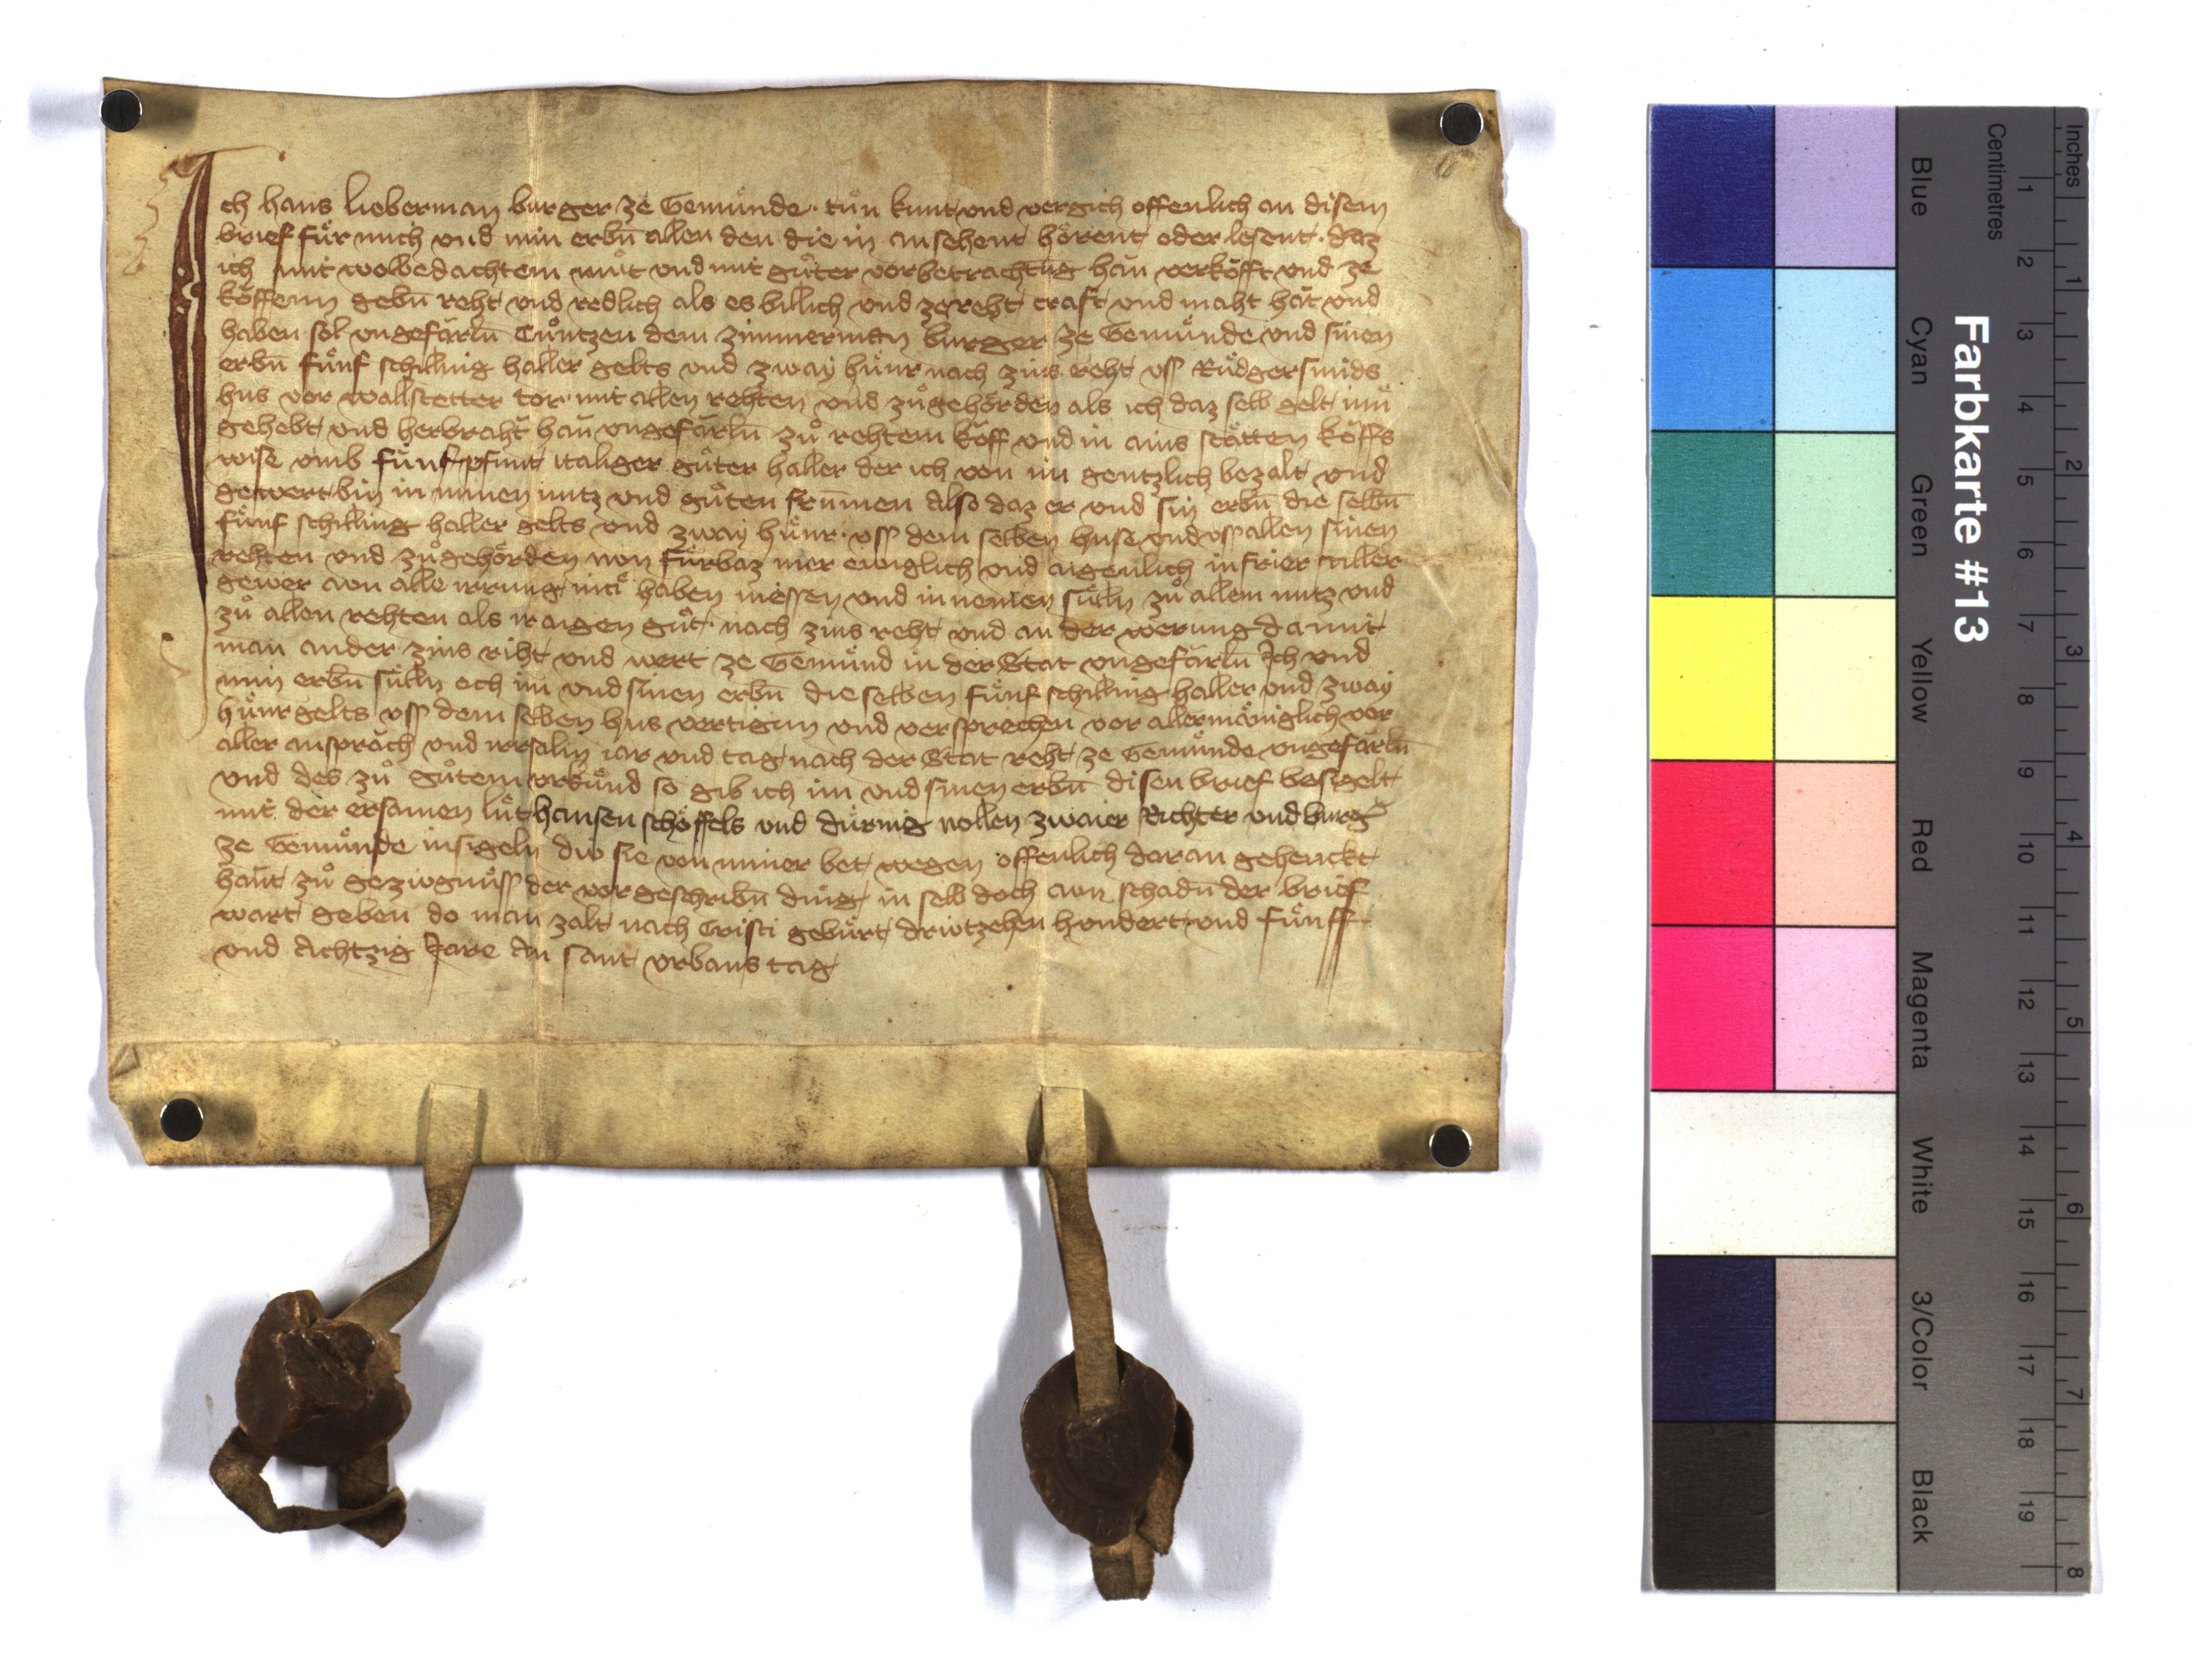 Ich hans Lieberman burger ze Gemuͤnde · tuͦn kunt und vergich offenlich an disem
brief fuͤr mich und min erbn̄ allen den die in ansehent hoͤrent oder lesent · daz
ich mit wolbedachtem muͦt und mit guͦter vorbetrachtūg han verkoͤfft und ze
koͤffenn gebn̄ reht und redlich als es billich und ze reht craft und maht hāt und
haben sol ungefarln̄ Cuͦntzen dem zimmerman burger ze Gemuͤnde und sinen
erbn̄ fuͤnf schilling haller gelts und zway huͤnr nach zins reht uss Ruͤdger smids
hus vor wallstetter tor mit allen rehten und zuͦgehoͤrden als ich daz selb gelt inn
gehebt und herbraht han ungefarln̄ zuͦ rehtem koͤff und in ains staͤtten koͤffs
wise umb fuͤnf pfunt italiger guͦter haller der ich von im gentzlich bezalt und
gewert bin in minen nutz und guͦten frūmen Also daz er und sin erbn̄ die selbn̄
fuͤnf schilling haller gelts und zway huͤnr · uss dem selben huse und uss allen sinen
rehten und zuͦgehoͤrden nvn fuͤrbaz mer ewiglich und aigenlich in frier stiller
gewer aun alle irrung haben niessen und in nemen suͤlln zuͦ allem nutz und
zuͦ allen rehten als ir aigen guͦt · nach zins reht und an der werung da mit
man ander zins riht und wert ze Gemuͤnd in der Stat ungefarln̄ Ich und
min erbn̄ suͤlln och im und sinen erbn̄ die selben fuͤnf schilling haller und zway
huͤnr gelts uss dem selben hus vertigen und versprechen vor allermaͤniglich vor
aller anspraͤch und irrsalin iar und tag nach der Stat reht ze Gemuͤnde ungefarln̄
und des zuͦ guͦtem urkuͤnd so gib ich im und sinen erbn̄ disen brief besigelt
mit der ersamen luͤt hansen schoͤffels und duͤring nollen zwaier Richter und burgͤ
ze Gemuͤnde insigeln diu sie von miner bet wegen offenlich daran gehenckt
hant zuͦ geziugnuͤss der vorgeschribn̄ ding in selb doch aun schadn̄ der brief
wart geben do man zalt nach Cristi geburt driutzehen hundert und fuͤnff
und Achtzig Jare An sant urbans tag
Farbkarte #13
Blue Cyan Green Yellow Red Magenta White 3/Color Black
Centimetres 1 2 3 4 5 6 7 8 9 10 11 12 13 14 15 16 17 18 19
Inches 1 2 3 4 5 6 7 8